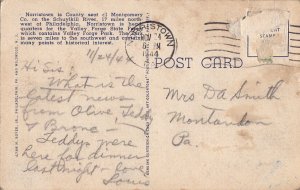 Norristown is County seat of Montgomery
Co. on the Schuylkill River, 17 miles north
west of Philadelphia. Norristown is head-
quarters for the Valley Forge State Park
which contains Valley Forge Park. The Park
is seven miles to the southwest and contains
many points of historical interest.
NOV 24
PM
1944
STAMP
POST CARD
11/24/44
Hi Sis!
What is the
latest news
from Olive, Teddy
& Bronc -
Teddys were
here for dinner
last night - love
Louis
Mrs Da Smith
Montandon
Pa.